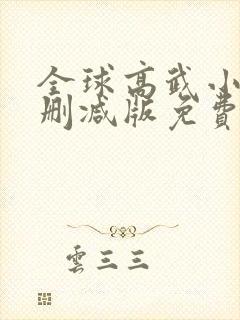 全球高武小
删减版免費
雲三三